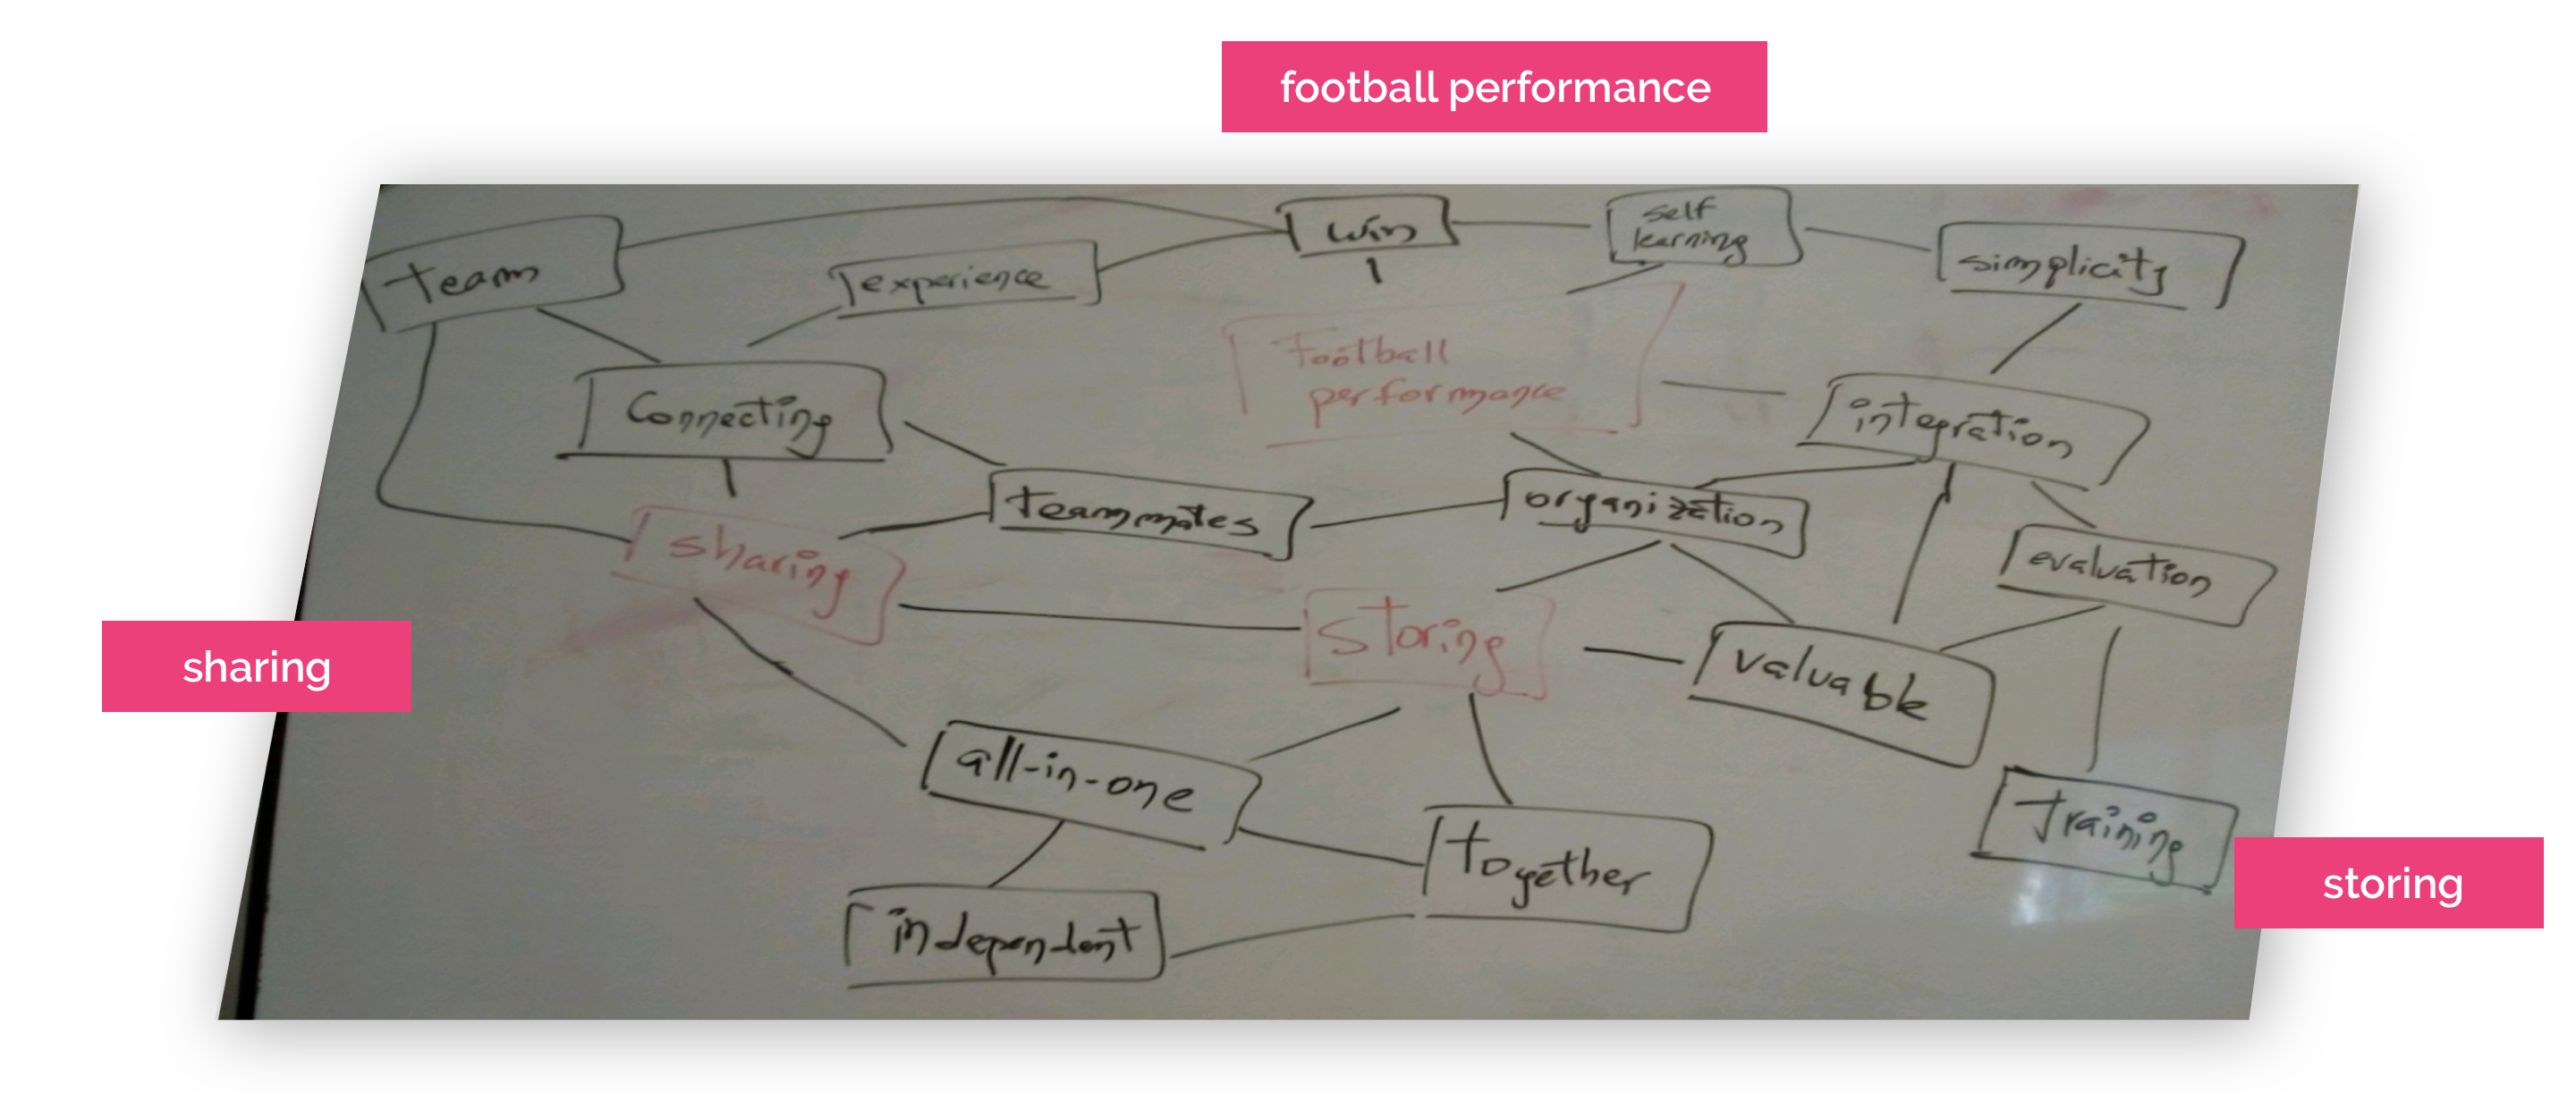 football performance
team
experience
win
self
learning
simplicity
Football
performance
Connecting
integration
teammates
organization
sharing
evaluation
storing
valuable
sharing
all-in-one
together
Training
storing
independent